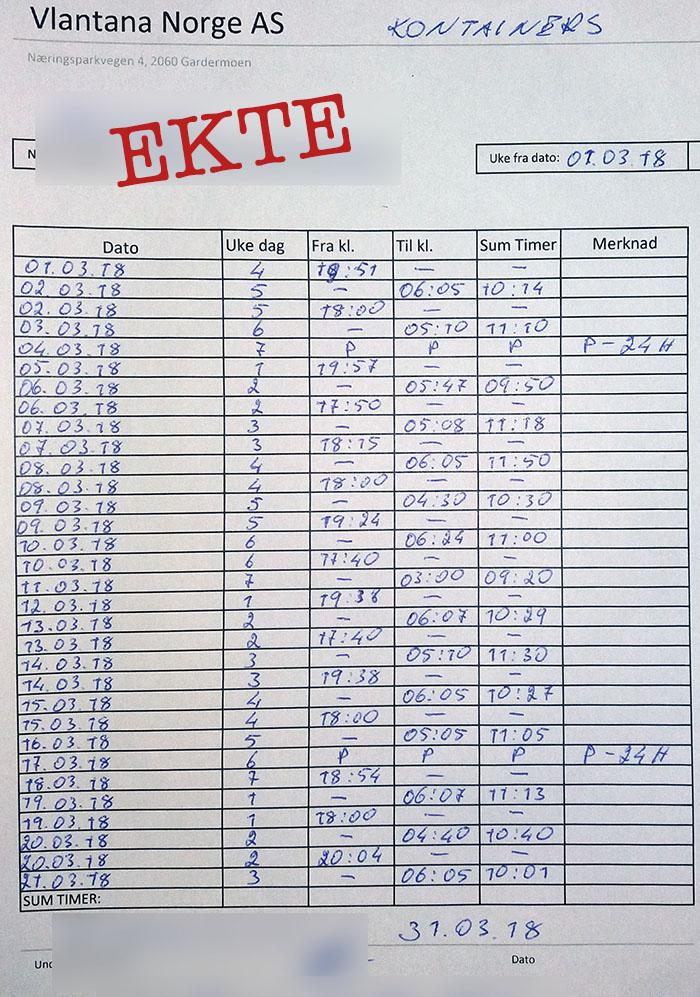 Vlantana Norge AS KONTAINERS
Næringsparkvegen 4, 2060 Gardermoen
EKTE
N Uke fra dato: 01.03.18
Dato Uke dag Fra kl. Til kl. Sum Timer Merknad
01.03.18 4 19:51 — —
02.03.18 5 — 06:05 10:14
02.03.18 5 18:00 — —
03.03.18 6 — 05:10 11:10
04.03.18 7 P P P P-24H
05.03.18 1 19:57 — —
06.03.18 2 — 05:47 09:50
06.03.18 2 17:50 — —
07.03.18 3 — 05:08 11:18
07.03.18 3 18:15 — —
08.03.18 4 — 06:05 11:50
08.03.18 4 18:00 — —
09.03.18 5 — 04:30 10:30
09.03.18 5 19:24 — —
10.03.18 6 — 06:24 11:00
10.03.18 6 17:40 — —
11.03.18 7 — 03:00 09:20
12.03.18 1 19:38 — —
13.03.18 2 — 06:07 10:29
13.03.18 2 17:40 — —
14.03.18 3 — 05:10 11:30
14.03.18 3 19:38 — —
15.03.18 4 — 06:05 10:27
15.03.18 4 18:00 — —
16.03.18 5 — 05:05 11:05
17.03.18 6 P P P P-24H
18.03.18 7 18:54 — —
19.03.18 1 — 06:07 11:13
19.03.18 1 18:00 — —
20.03.18 2 — 04:40 10:40
20.03.18 2 20:04 — —
21.03.18 3 — 06:05 10:01
SUM TIMER:
31.03.18
Und Dato